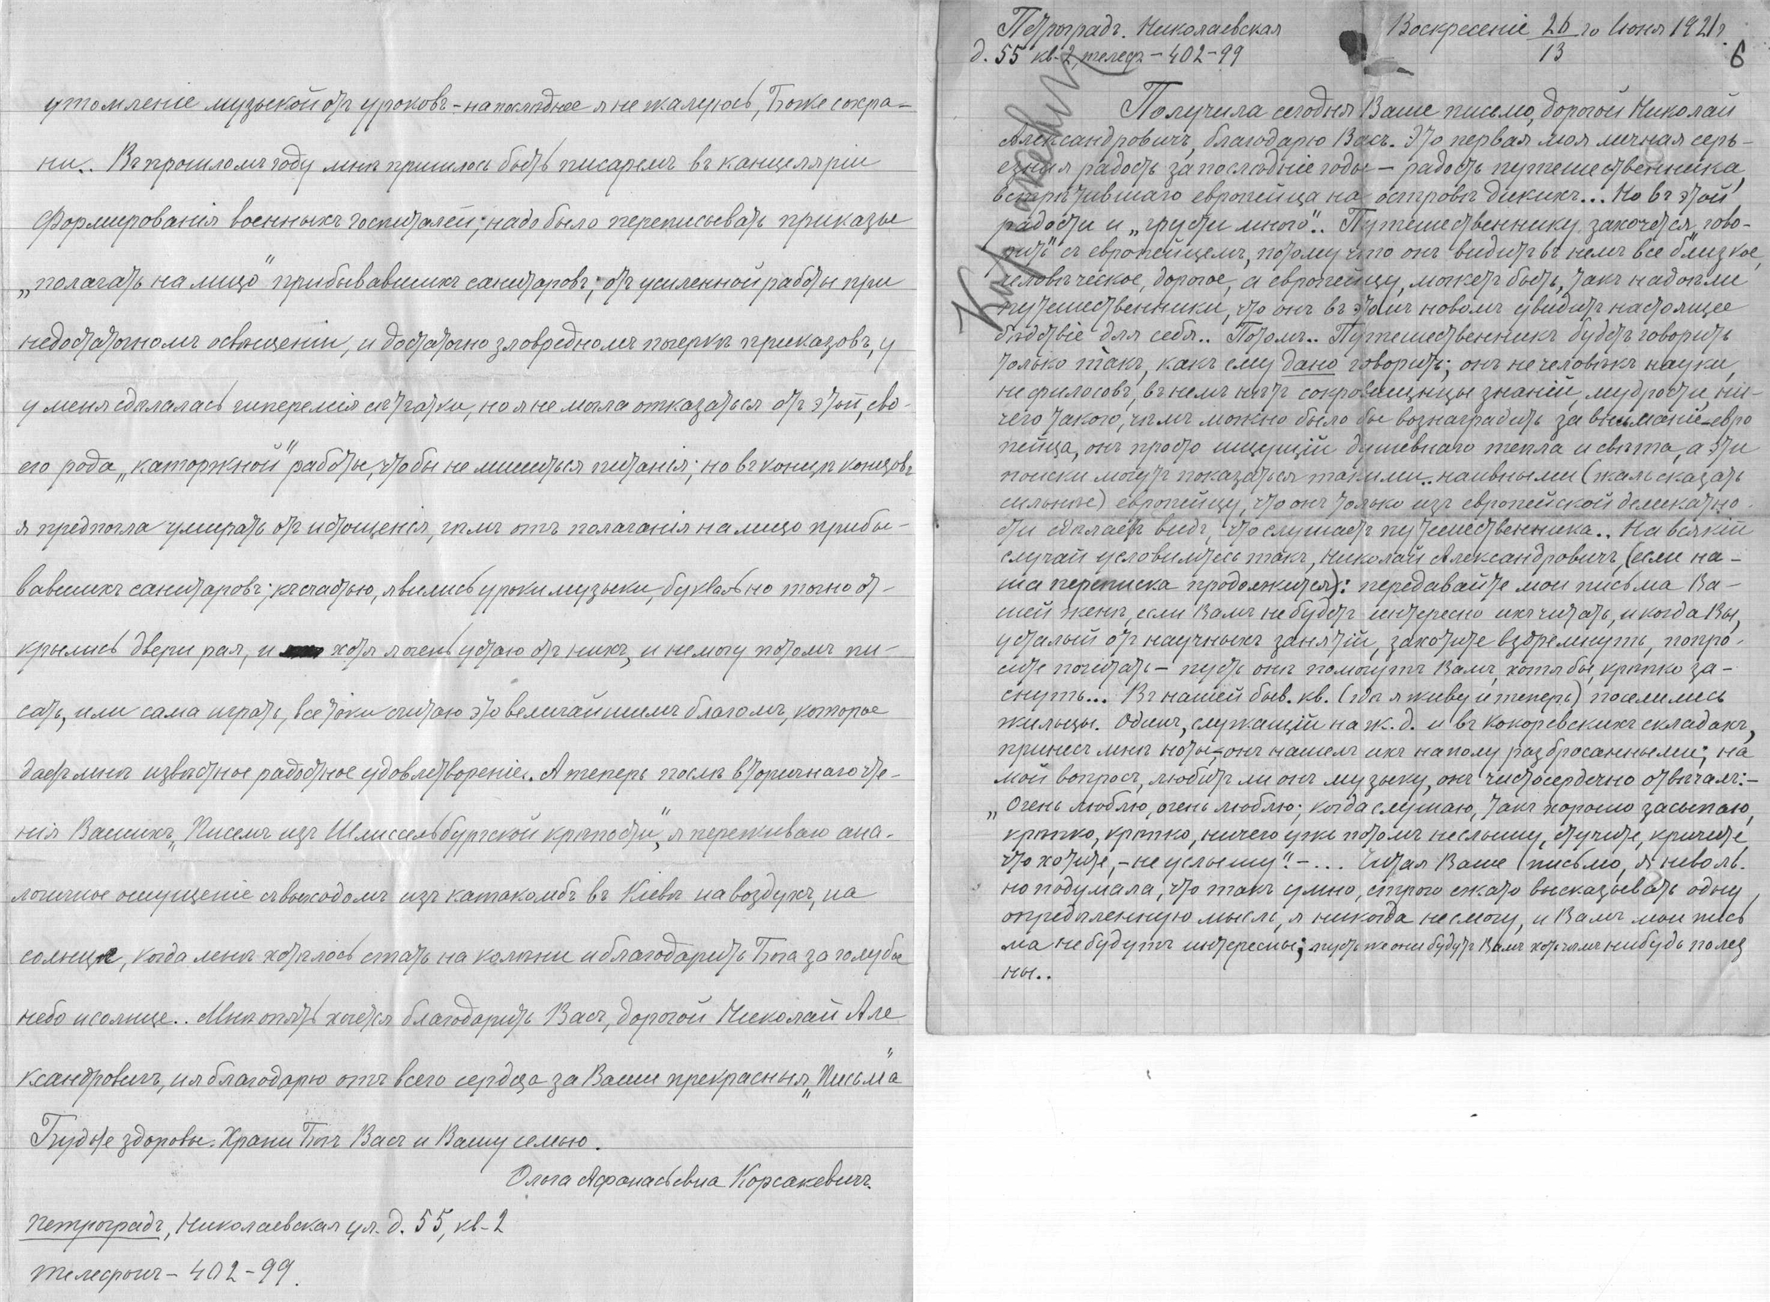 утомленіе музыкой отъ уроковъ – на последнее я не жалуюсь, Боже сохра-
ни.. Въ прошломъ году мнѣ пришлось быть писаремъ въ канцеляріи
Формированія военныхъ госпиталей; надо было переписывать приказы
„полагать на лицо" прибывавшихъ санитаровъ; отъ усиленной работы при
недостаточномъ освѣщеніи, и достаточно зловредномъ почеркѣ приказовъ, у
у меня сдѣлалась гиперемія сѣтчатки, но я не могла отказаться отъ этой, сво-
его рода „каторжной" работы, чтобы не лишиться питанія; но въ концѣ концовъ
я предпочла умирать отъ истощенія, чѣмъ отъ полаганія на лицо прибы-
вавшихъ санитаровъ; къ счастью, явились уроки музыки, буквально точно от-
крылись двери рая, и хотя я очень устаю отъ нихъ, и не могу потомъ пи-
сать, или сама играть, все таки считаю это величайшимъ благомъ, которое
даетъ мнѣ извѣстное радостное удовлетвореніе. А теперь послѣ вторичнаго чте-
нія Вашихъ „Писемъ изъ Шлиссельбургской крѣпости", я переживаю ана-
логичное ощущеніе съ выходомъ изъ катакомбъ въ Кіевѣ на воздухъ, на
солнце, когда мнѣ хотѣлось стать на колѣни и благодарить Бога за голубое
небо и солнце.. Мнѣ опять хочется благодарить Васъ, дорогой Николай Але
ксандровичъ, и я благодарю отъ всего сердца за Ваши прекрасныя „Письма"
Будьте здоровы. Храни Богъ Васъ и Вашу семью.
Ольга Афанасьевна Корсакевичъ.
Петроградъ, Николаевская ул. д. 55, кв-2
телефонъ – 402-99.
Петроградъ. Николаевская
д. 55 кв-2, телеф – 402-99
Воскресеніе 26/13 го Іюня 1921 г.
6
Корсакевич
Получила сегодня Ваше письмо, дорогой Николай
Александровичъ, благодарю Васъ. Это первая моя личная серь-
езная радость за последніе годы – радость путешественника,
встрѣтившаго европейца на островѣ дикихъ... Но въ этой
радости и „грусти много".. Путешественнику захочется гово-
рить съ европейцемъ, потому что онъ видитъ въ немъ все близкое,
человѣческое, дорогое, а европейцу, можетъ быть, такъ надоѣли
путешественники, что онъ въ этомъ новомъ увидитъ настоящее
бѣдствіе для себя.. Потомъ.. Путешественникъ будетъ говорить
только такъ, какъ ему дано говорить; онъ не человѣкъ науки,
не философъ, въ немъ нѣтъ сокровищницы знаній, мудрости, ни-
чего такого, чѣмъ можно было бы вознаградить за вниманіе евро
пейца, онъ просто ищущій душевнаго тепла и свѣта, а эти
поиски могутъ показаться такими.. наивными (жаль сказать
сильнѣе) европейцу, что онъ только изъ европейской деликатно
сти сдѣлаетъ видъ, что слушаетъ путешественника.. На всякій
случай условимтесь такъ, Николай Александровичъ, (если на-
ша переписка продолжится): передавайте мои письма Ва-
шей женѣ, если Вамъ не будетъ интересно ихъ читать, и когда Вы,
усталый отъ научныхъ занятій, захотите вздремнуть, попро-
сите почитать – пусть они помогутъ Вамъ, хотя бы, крѣпко за-
снуть... Въ нашей быв. кв. (гдѣ я живу и теперь) поселились
жильцы. Одинъ, служащій на ж.д. и въ Кокоревскихъ складахъ,
принесъ мнѣ ноты, – онъ нашелъ ихъ на полу разбросанными; на
мой вопросъ, любитъ ли онъ музыку, онъ чистосердечно отвѣчалъ: –
„Очень люблю, очень люблю; когда слушаю, такъ хорошо засыпаю,
крѣпко, крѣпко, ничего ужъ потомъ не слышу, стучите, кричите,
что хотите, – не услышу" – ... Читая Ваше письмо, я неволь-
но подумала, что такъ умно, строго сжато высказывать одну,
опредѣленную мысль, я никогда не смогу, и Вамъ мои пись
ма не будутъ интересны; пусть же они будутъ Вамъ хотя чѣмъ нибудь полез
ны..